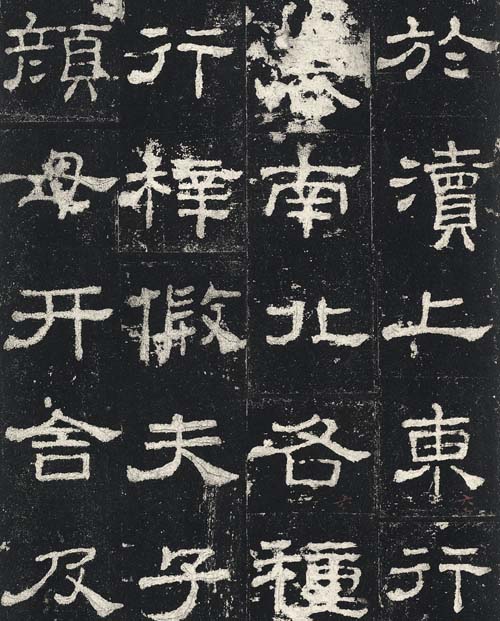 於瀆上東行
南北各種
行梓假夫子
顏母开舍及